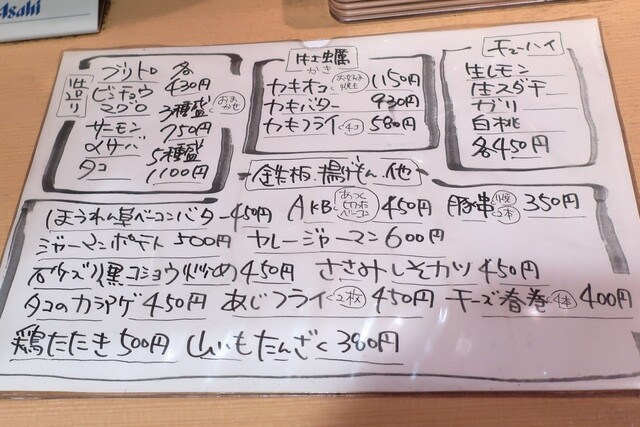 Asahi
造り
ブリトロ 各
ビンチョウ 430円
マグロ 3種盛 おまかせ
サーモン 750円
〆サバ 5種盛
タコ 1100円
牡蠣
かき
カキオコ お好み焼き 1150円
カキバター 930円
カキフライ 4コ 580円
チューハイ
生レモン
生スダチ
ガリ
白桃
各450円
鉄板、揚げもん、他
ほうれん草ベーコンバター 450円 AKB あつぎりベーコン 450円 豚串 2本 350円
ジャーマンポテト 500円 カレージャーマン 600円
砂ズリ黒コショウ炒め 450円 ささみしそカツ 450円
タコのカラアゲ 450円 あじフライ 2枚 450円 チーズ春巻 4本 400円
鶏たたき 500円 山いもたんざく 380円